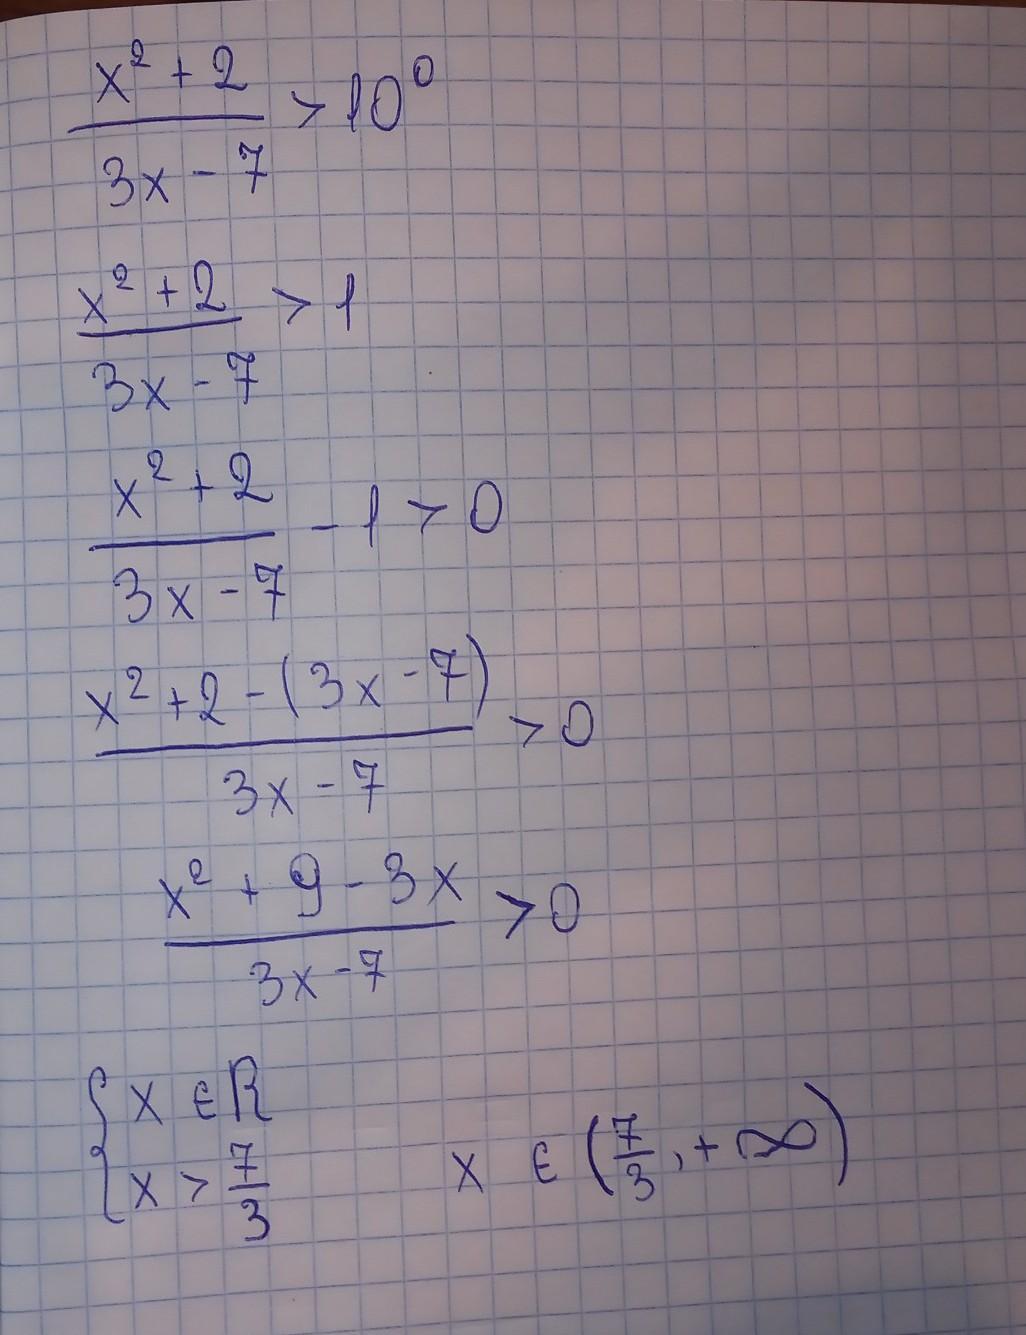 x² + 2 / 3x - 7 > 10⁰
x² + 2 / 3x - 7 > 1
x² + 2 / 3x - 7 - 1 > 0
x² + 2 - (3x - 7) / 3x - 7 > 0
x² + 9 - 3x / 3x - 7 > 0
{ x ∈ R
x > 7/3 x ∈ (7/3, +∞)